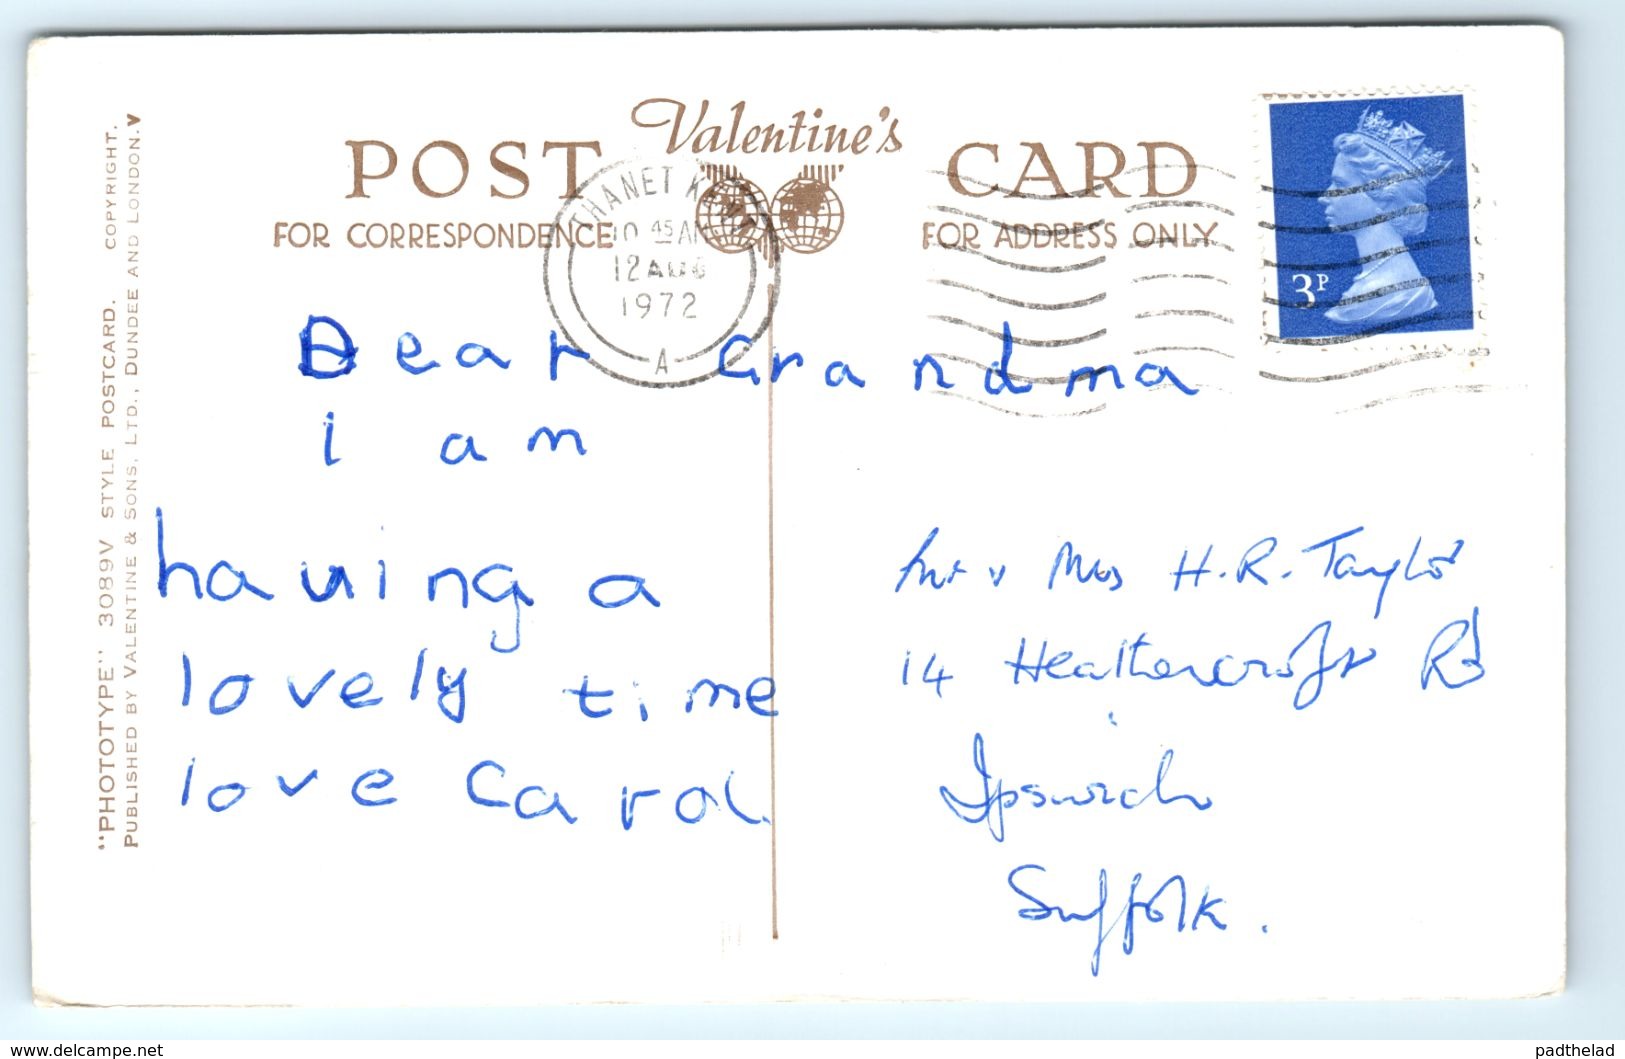 Valentine's
POST CARD
FOR CORRESPONDENCE
FOR ADDRESS ONLY
THANET KENT
10 45 AM
12 AUG
1972
A
3P
Dear Grandma
I am
having a
lovely time
love Carol
Mr & Mrs H. R. Taylor
14 Heathercroft Rd
Ipswich
Suffolk.
"PHOTOTYPE" 3089V STYLE POSTCARD. COPYRIGHT.
PUBLISHED BY VALENTINE & SONS, LTD., DUNDEE AND LONDON. V
www.delcampe.net
padthelad